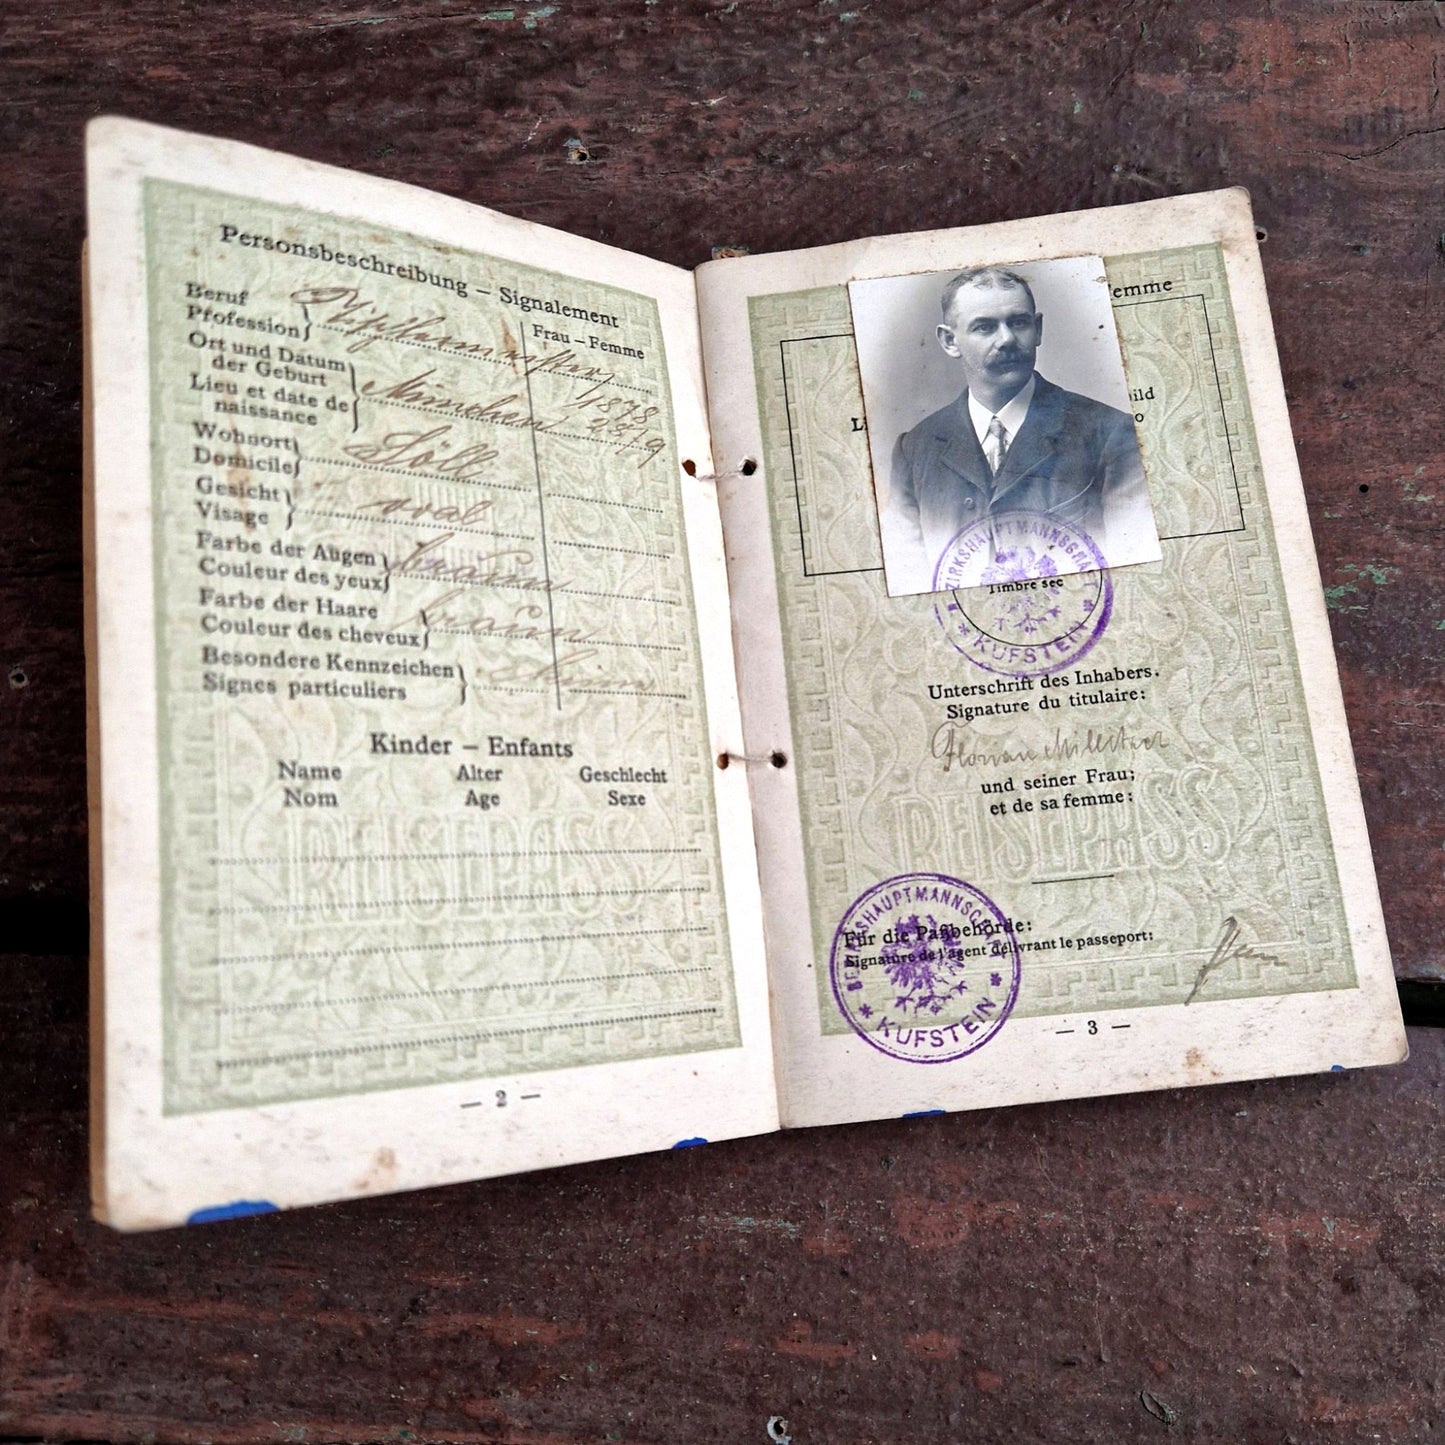 Personsbeschreibung – Signalement
Frau – Femme
Beruf
Pfofession
Tischlermeister
Ort und Datum
der Geburt
Lieu et date de
naissance
München 1878
Wohnort
Domicile
Söll
Gesicht
Visage
oval
Farbe der Augen
Couleur des yeux
braun
Farbe der Haare
Couleur des cheveux
braun
Besondere Kennzeichen
Signes particuliers
Kinder – Enfants
Name Alter Geschlecht
Nom Age Sexe
REISEPASS
— 2 —
emme
ild
Li
o
BEZIRKSHAUPTMANNSCHAFT
Timbre sec
* KUFSTEIN *
Unterschrift des Inhabers.
Signature du titulaire:
Florian
und seiner Frau;
et de sa femme:
REISEPASS
BEZIRKSHAUPTMANNSCHAFT
Für die Paßbehörde:
Signature de l'agent délivrant le passeport:
* KUFSTEIN *
— 3 —